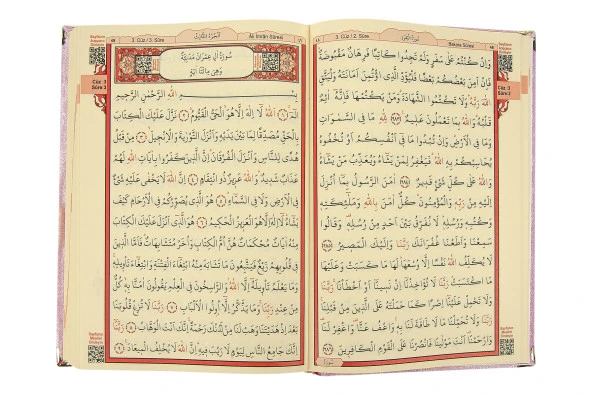 ٤٨
3. Cüz / 2. Sûre
سُورَةُ الْبَقَرَةِ
Bakara Sûresi
48
Cüz :3
Sûre:2
وَاِنْ كُنْتُمْ عَلٰى سَفَرٍ وَلَمْ تَجِدُوا كَاتِبًا فَرِهَانٌ مَقْبُوضَةٌ
فَاِنْ اَمِنَ بَعْضُكُمْ بَعْضًا فَلْيُؤَدِّ الَّذِي اؤْتُمِنَ اَمَانَتَهُ وَلْيَتَّقِ
اللّٰهَ رَبَّهُ وَلَا تَكْتُمُوا الشَّهَادَةَ وَمَنْ يَكْتُمْهَا فَاِنَّهُ اٰثِمٌ
قَلْبُهُ وَاللّٰهُ بِمَا تَعْمَلُونَ عَلِيمٌ ﴿٢٨٣﴾ لِلّٰهِ مَا فِي السَّمٰوَاتِ
وَمَا فِي الْاَرْضِ وَاِنْ تُبْدُوا مَا فِي اَنْفُسِكُمْ اَوْ تُخْفُوهُ
يُحَاسِبْكُمْ بِهِ اللّٰهُ فَيَغْفِرُ لِمَنْ يَشَاءُ وَيُعَذِّبُ مَنْ يَشَاءُ
وَاللّٰهُ عَلٰى كُلِّ شَيْءٍ قَدِيرٌ ﴿٢٨٤﴾ اٰمَنَ الرَّسُولُ بِمَا اُنْزِلَ
اِلَيْهِ مِنْ رَبِّهِ وَالْمُؤْمِنُونَ كُلٌّ اٰمَنَ بِاللّٰهِ وَمَلٰئِكَتِهِ
وَكُتُبِهِ وَرُسُلِهِ لَا نُفَرِّقُ بَيْنَ اَحَدٍ مِنْ رُسُلِهِ وَقَالُوا
سَمِعْنَا وَاَطَعْنَا غُفْرَانَكَ رَبَّنَا وَاِلَيْكَ الْمَصِيرُ ﴿٢٨٥﴾
لَا يُكَلِّفُ اللّٰهُ نَفْسًا اِلَّا وُسْعَهَا لَهَا مَا كَسَبَتْ وَعَلَيْهَا
مَا اكْتَسَبَتْ رَبَّنَا لَا تُؤَاخِذْنَا اِنْ نَسِينَا اَوْ اَخْطَاْنَا رَبَّنَا
وَلَا تَحْمِلْ عَلَيْنَا اِصْرًا كَمَا حَمَلْتَهُ عَلَى الَّذِينَ مِنْ قَبْلِنَا
رَبَّنَا وَلَا تُحَمِّلْنَا مَا لَا طَاقَةَ لَنَا بِهِ وَاعْفُ عَنَّا وَاغْفِرْ لَنَا
وَارْحَمْنَا اَنْتَ مَوْلٰينَا فَانْصُرْنَا عَلَى الْقَوْمِ الْكَافِرِينَ ﴿٢٨٦﴾
سُورَةُ
49
3. Cüz / 3. Sûre
اَلْجُزْءُ الثَّالِثُ
Âli İmrân Sûresi
٤٩
Cüz :3
Sûre:3
سُورَةُ اٰلِ عِمْرَانَ مَدَنِيَّةٌ
وَهِيَ مِائَتَا اٰيَةٍ
بِسْمِ اللّٰهِ الرَّحْمٰنِ الرَّحِيمِ
الٓمٓ ﴿١﴾ اَللّٰهُ لَا اِلٰهَ اِلَّا هُوَ الْحَيُّ الْقَيُّومُ ﴿٢﴾ نَزَّلَ عَلَيْكَ الْكِتَابَ
بِالْحَقِّ مُصَدِّقًا لِمَا بَيْنَ يَدَيْهِ وَاَنْزَلَ التَّوْرٰيةَ وَالْاِنْجِيلَ ﴿٣﴾ مِنْ قَبْلُ
هُدًى لِلنَّاسِ وَاَنْزَلَ الْفُرْقَانَ اِنَّ الَّذِينَ كَفَرُوا بِاٰيَاتِ اللّٰهِ لَهُمْ
عَذَابٌ شَدِيدٌ وَاللّٰهُ عَزِيزٌ ذُو انْتِقَامٍ ﴿٤﴾ اِنَّ اللّٰهَ لَا يَخْفٰى عَلَيْهِ شَيْءٌ
فِي الْاَرْضِ وَلَا فِي السَّمَاءِ ﴿٥﴾ هُوَ الَّذِي يُصَوِّرُكُمْ فِي الْاَرْحَامِ كَيْفَ
يَشَاءُ لَا اِلٰهَ اِلَّا هُوَ الْعَزِيزُ الْحَكِيمُ ﴿٦﴾ هُوَ الَّذِي اَنْزَلَ عَلَيْكَ الْكِتَابَ
مِنْهُ اٰيَاتٌ مُحْكَمَاتٌ هُنَّ اُمُّ الْكِتَابِ وَاُخَرُ مُتَشَابِهَاتٌ فَاَمَّا الَّذِينَ
فِي قُلُوبِهِمْ زَيْغٌ فَيَتَّبِعُونَ مَا تَشَابَهَ مِنْهُ ابْتِغَاءَ الْفِتْنَةِ وَابْتِغَاءَ تَاْوِيلِهِ
وَمَا يَعْلَمُ تَاْوِيلَهُ اِلَّا اللّٰهُ وَالرَّاسِخُونَ فِي الْعِلْمِ يَقُولُونَ اٰمَنَّا بِهِ كُلٌّ
مِنْ عِنْدِ رَبِّنَا وَمَا يَذَّكَّرُ اِلَّا اُولُوا الْاَلْبَابِ ﴿٧﴾ رَبَّنَا لَا تُزِغْ قُلُوبَنَا
بَعْدَ اِذْ هَدَيْتَنَا وَهَبْ لَنَا مِنْ لَدُنْكَ رَحْمَةً اِنَّكَ اَنْتَ الْوَهَّابُ ﴿٨﴾ رَبَّنَا
اِنَّكَ جَامِعُ النَّاسِ لِيَوْمٍ لَا رَيْبَ فِيهِ اِنَّ اللّٰهَ لَا يُخْلِفُ الْمِيعَادَ ﴿٩﴾